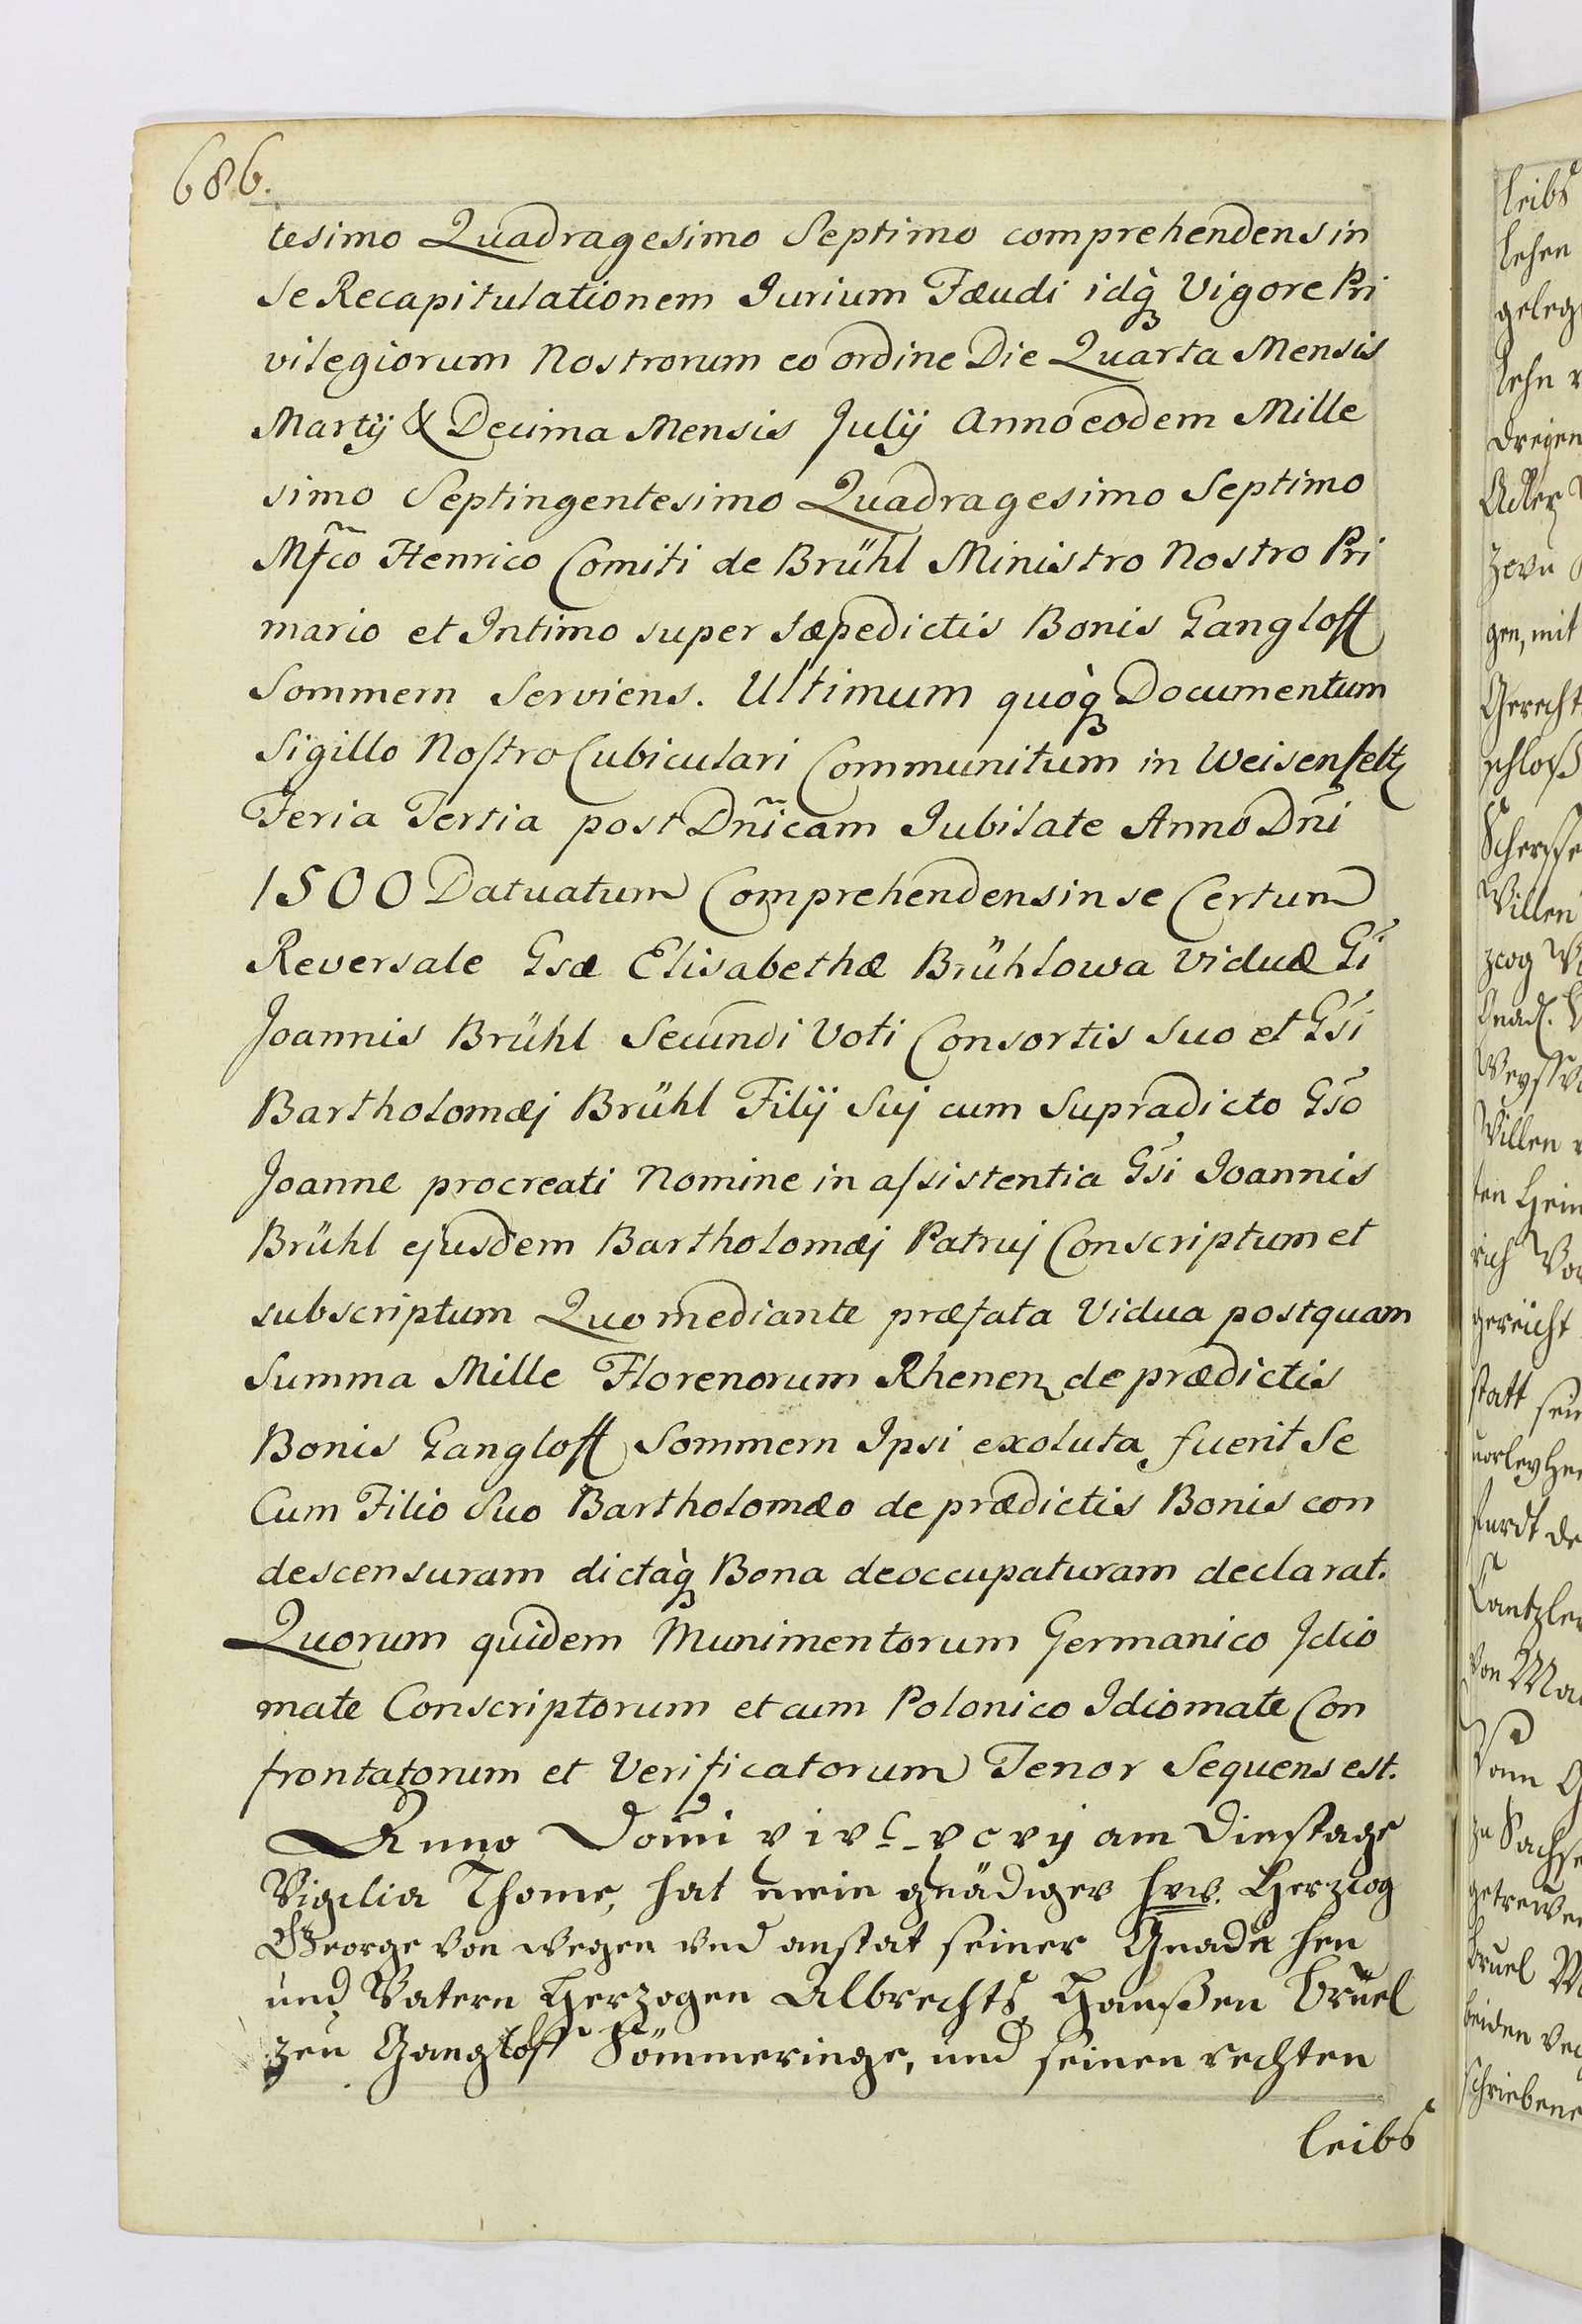 686.
tesimo Quadragesimo Septimo comprehendens in
se Recapitulationem Jurium Fæudi idq̀ꝫ Vigore Pri
vilegiorum Nostrorum eo ordine Die Quarta Mensis
Martÿ & Decima Mensis Julÿ Anno eodem Mille
simo Septingentesimo Quadragesimo Septimo
Mf̃co Henrico Comiti de Brühl Ministro Nostro Pri
mario et Intimo super sæpedictis Bonis Gangloff
Sommern Serviens. Ultimum quoq̀ꝫ Documentum
Sigillo Nostro Cubiculari Communitum in Weisenfeltz
Feria Tertia post Dñicam Jubilate Anno Dñi
1500 Datuatum Comprehendens in se Certum
Reversale Gsæ Elisabethæ Brühlowa Viduæ Gi
Joannis Brühl Secundi Voti Consortis suo et Gsi
Bartholomæj Brühl Filÿ Suj cum Supradicto Gso
Joanne procreati Nomine in assistentia Gsi Joannis
Brühl ejusdem Bartholomæj Patruj Conscriptum et
subscriptum Quo mediante præfata Vidua postquam
Summa Mille Florenorum Rhenen de prædictis
Bonis Gangloff Sommern Ipsi exoluta fuerit Se
Cum Filio Suo Bartholomæo de prædictis Bonis con
descensuram dictaq̀ꝫ Bona deoccupaturam declarat.
Quorum quidem Munimentorum Germanico Idio
mate Conscriptorum et cum Polonico Idiomate Con
frontatorum et Verificatorum Tenor Sequens est.
Anno Domi v i v c - v c v ÿ am Dinstage
Vigilia Thome, hat mein gnädiger hrw. Herzcog
George von wegen vnd anstat seiner Gnaden hen
und Vatern Herzogen Albrechts Hanßen Bruel
zeu Gangloff Sömmeringe, und seinen rechten
leibs
leibs
lehen
geleg
lehn
dreyen
Adler
zevn
gen, mit
Gerecht
schloß
Willen
zcog
Gnad.
Willen
ten Hein
rich Vo
gereicht
statt sein
furdt de
Cantzler
von Ma
zu Sachse
getrewe
bruel
beiden
schriebene